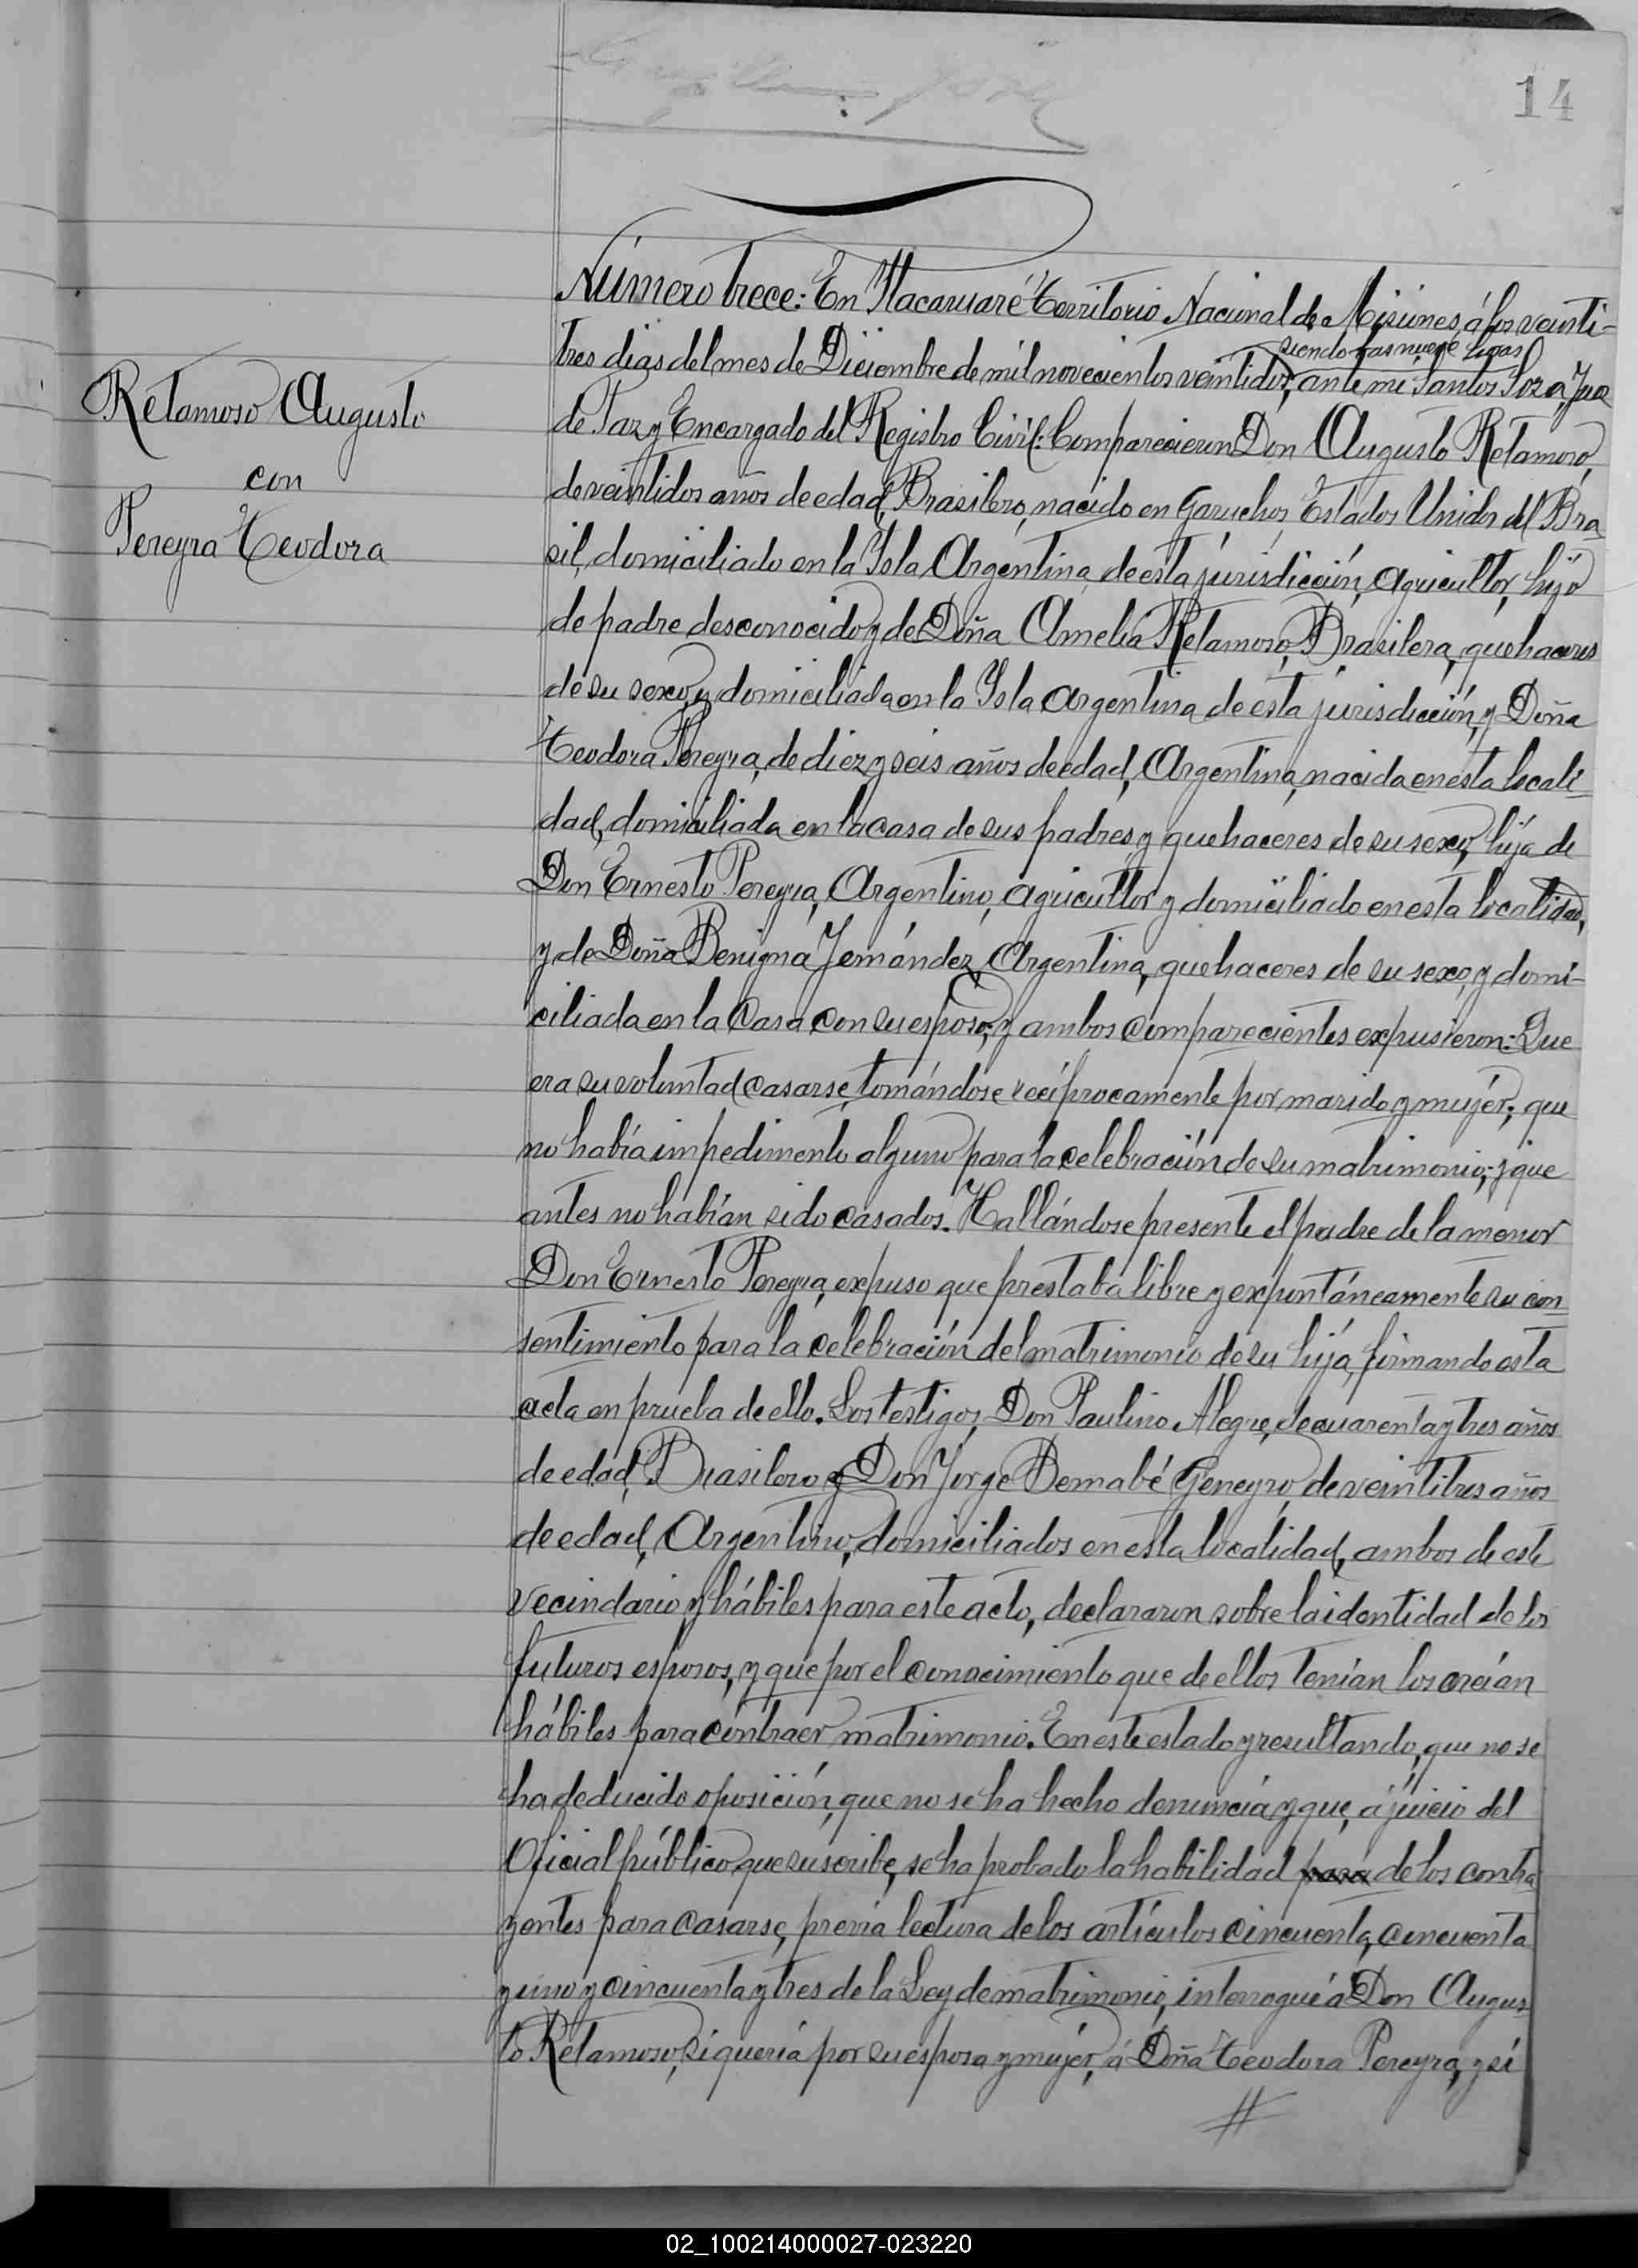 14
Retamoso Augusto
con
Pereyra Teodora
Número trece: En Itacaruaré Territorio Nacional de Misiones, á los veinti-
tres dias del mes de Diciembre de mil novecientos veintidos, siendo las nueve horas, ante mi Santos Soza, Juez
de Paz y Encargado del Registro Civil: Comparecieron Don Augusto Retamoso,
de veintidos años de edad, Brasilero, nacido en Garuchos, Estados Unidos del Bra-
sil, domiciliado en la Isla Argentina, de esta jurisdicción, agricultor, hijo
de padre desconocido y de Doña Amelia Retamoso, Brasilera, quehaceres
de su sexo, y domiciliada en la Isla Argentina de esta jurisdicción, y Doña
Teodora Pereyra, de diez y seis años de edad, Argentina, nacida en esta locali-
dad, domiciliada en la casa de sus padres, y quehaceres de su sexo, hija de
Don Ernesto Pereyra, Argentino, agricultor y domiciliado en esta localidad,
y de Doña Benigna Fernández, Argentina, quehaceres de su sexo, y domi-
ciliada en la casa con su esposo, y ambos comparecientes expusieron: Que
era su voluntad casarse, tomándose recíprocamente por marido y mujér; que
no había impedimento alguno para la celebración de su matrimonio; y que
antes no habían sido casados. Hallándose presente el padre de la menor
Don Ernesto Pereyra, expuso que prestaba libre y expontáneamente su con-
sentimiento para la celebración del matrimonio de su hija, firmando esta
acta en prueba de ello. Los testigos, Don Paulino Alegre, de cuarenta y tres años
de edad, Brasilero y Don Jorge Bernabé Geneyro, de veintitres años
de edad, Argentino, domiciliados en esta localidad, ambos de este
vecindario y hábiles para este acto, declararon sobre la identidad de los
futuros esposos, y que por el conocimiento que de ellos tenían los creían
hábiles para contraer matrimonio. En este estado y resultando, que no se
ha deducido oposición, que no se ha hecho denuncia y que, á juicio del
Oficial público que suscribe, se ha probado la habilidad para de los contra-
yentes para casarse, previa lectura de los artículos cincuenta, cincuenta
y uno y cincuenta y tres de la Ley de matrimonio, interrogué á Don Augus-
to Retamoso, si quería por su esposa y mujér, á Doña Teodora Pereyra, y si
//
02_100214000027-023220